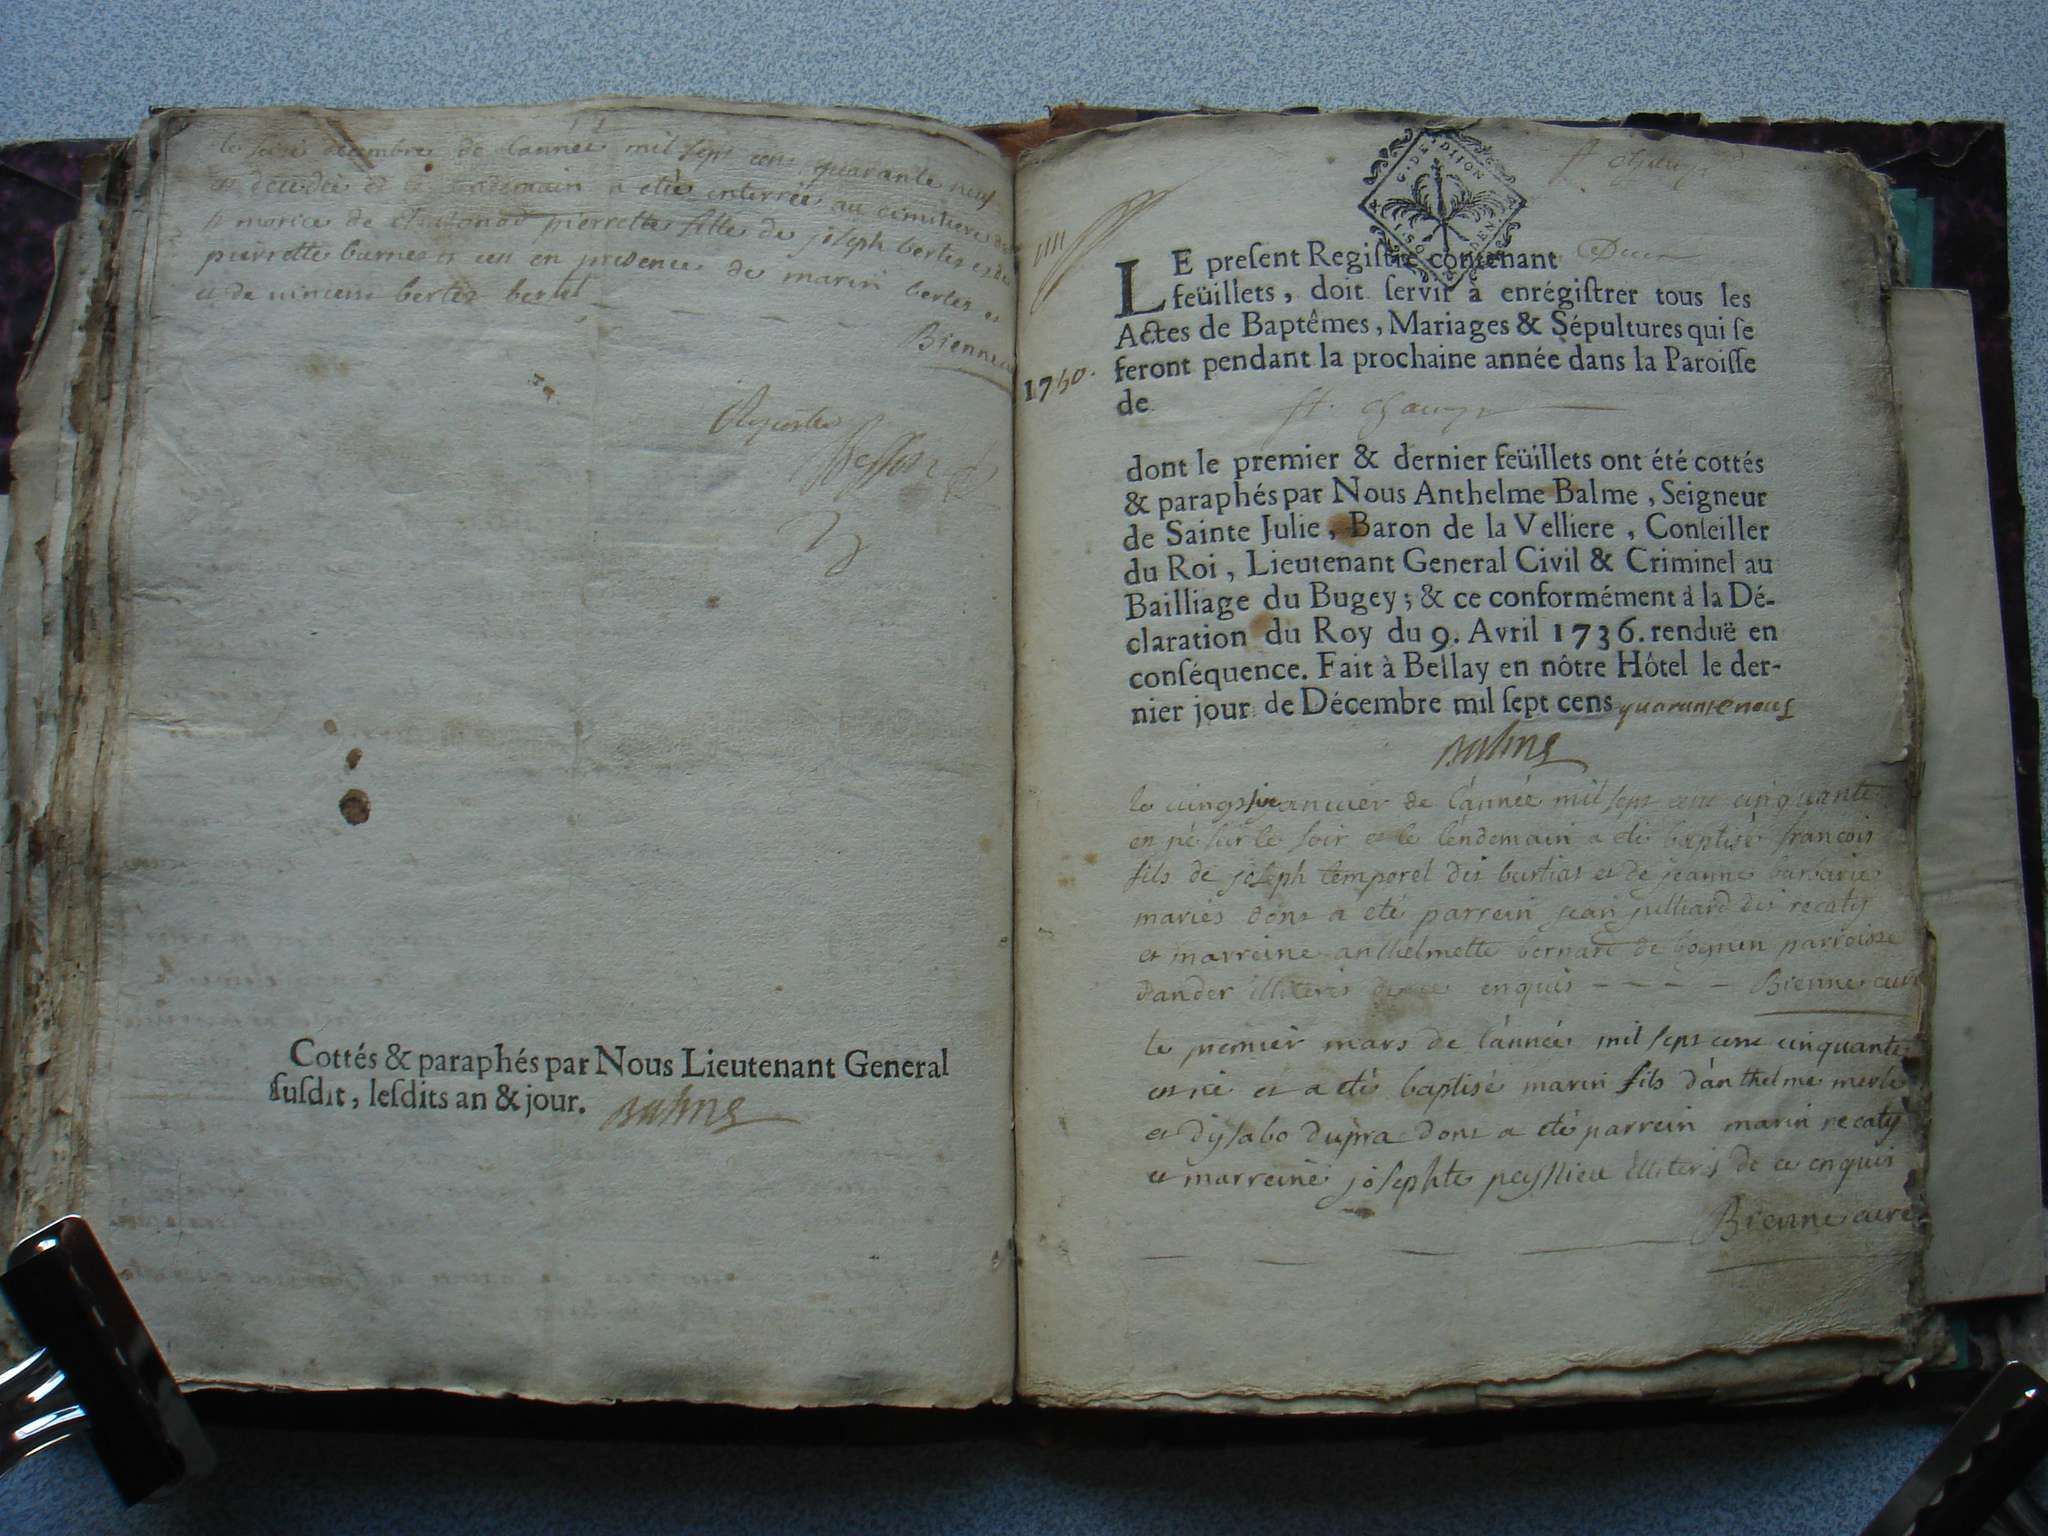 le seise decembre de l'année mil sept cens quarante neuf
est decedée et le lendemain a eté enterrée au cimitiere de
st morice de pierrette fille de joseph bertet et de
pierrette burnet et ce en presence de marin bertet et
et de bertet bertet
Bienne
Besson
Cottés & paraphés par Nous Lieutenant General
ſuſdit, leſdits an & jour. Balme
G. DE DIJON
LE preſent Regiſtre contenant Deux
feüillets, doit ſervir à enrégiſtrer tous les
Actes de Baptêmes, Mariages & Sépultures qui ſe
feront pendant la prochaine année dans la Paroiſſe
1750.
de
dont le premier & dernier feüillets ont été cottés
& paraphés par Nous Anthelme Balme, Seigneur
de Sainte Julie, Baron de la Velliere, Conſeiller
du Roi, Lieutenant General Civil & Criminel au
Bailliage du Bugey; & ce conformément à la Dé-
claration du Roy du 9. Avril 1736. renduë en
conſéquence. Fait à Bellay en nôtre Hôtel le der-
nier jour de Décembre mil ſept cens quarante neuf
Balme
le janvier de l'année mil sept cens cinquante
est né sur le soir et le lendemain a eté baptisé françois
fils de joseph temporel des burtias et de jeanne barbarie
mariés dont a eté parrein jean julliard des recaty
et marreine anthelmette bernard de parroisse
dander illiteris de ce enquis - - - - Bienne curé
le premier mars de l'année mil sept cens cinquante
est né et a eté baptisé marin fils d'anthelme merle
et dysabo dupra dont a eté parrein marin recaty
et marreine josephte peyssieu illiteris de ce enquis
Bienne curé